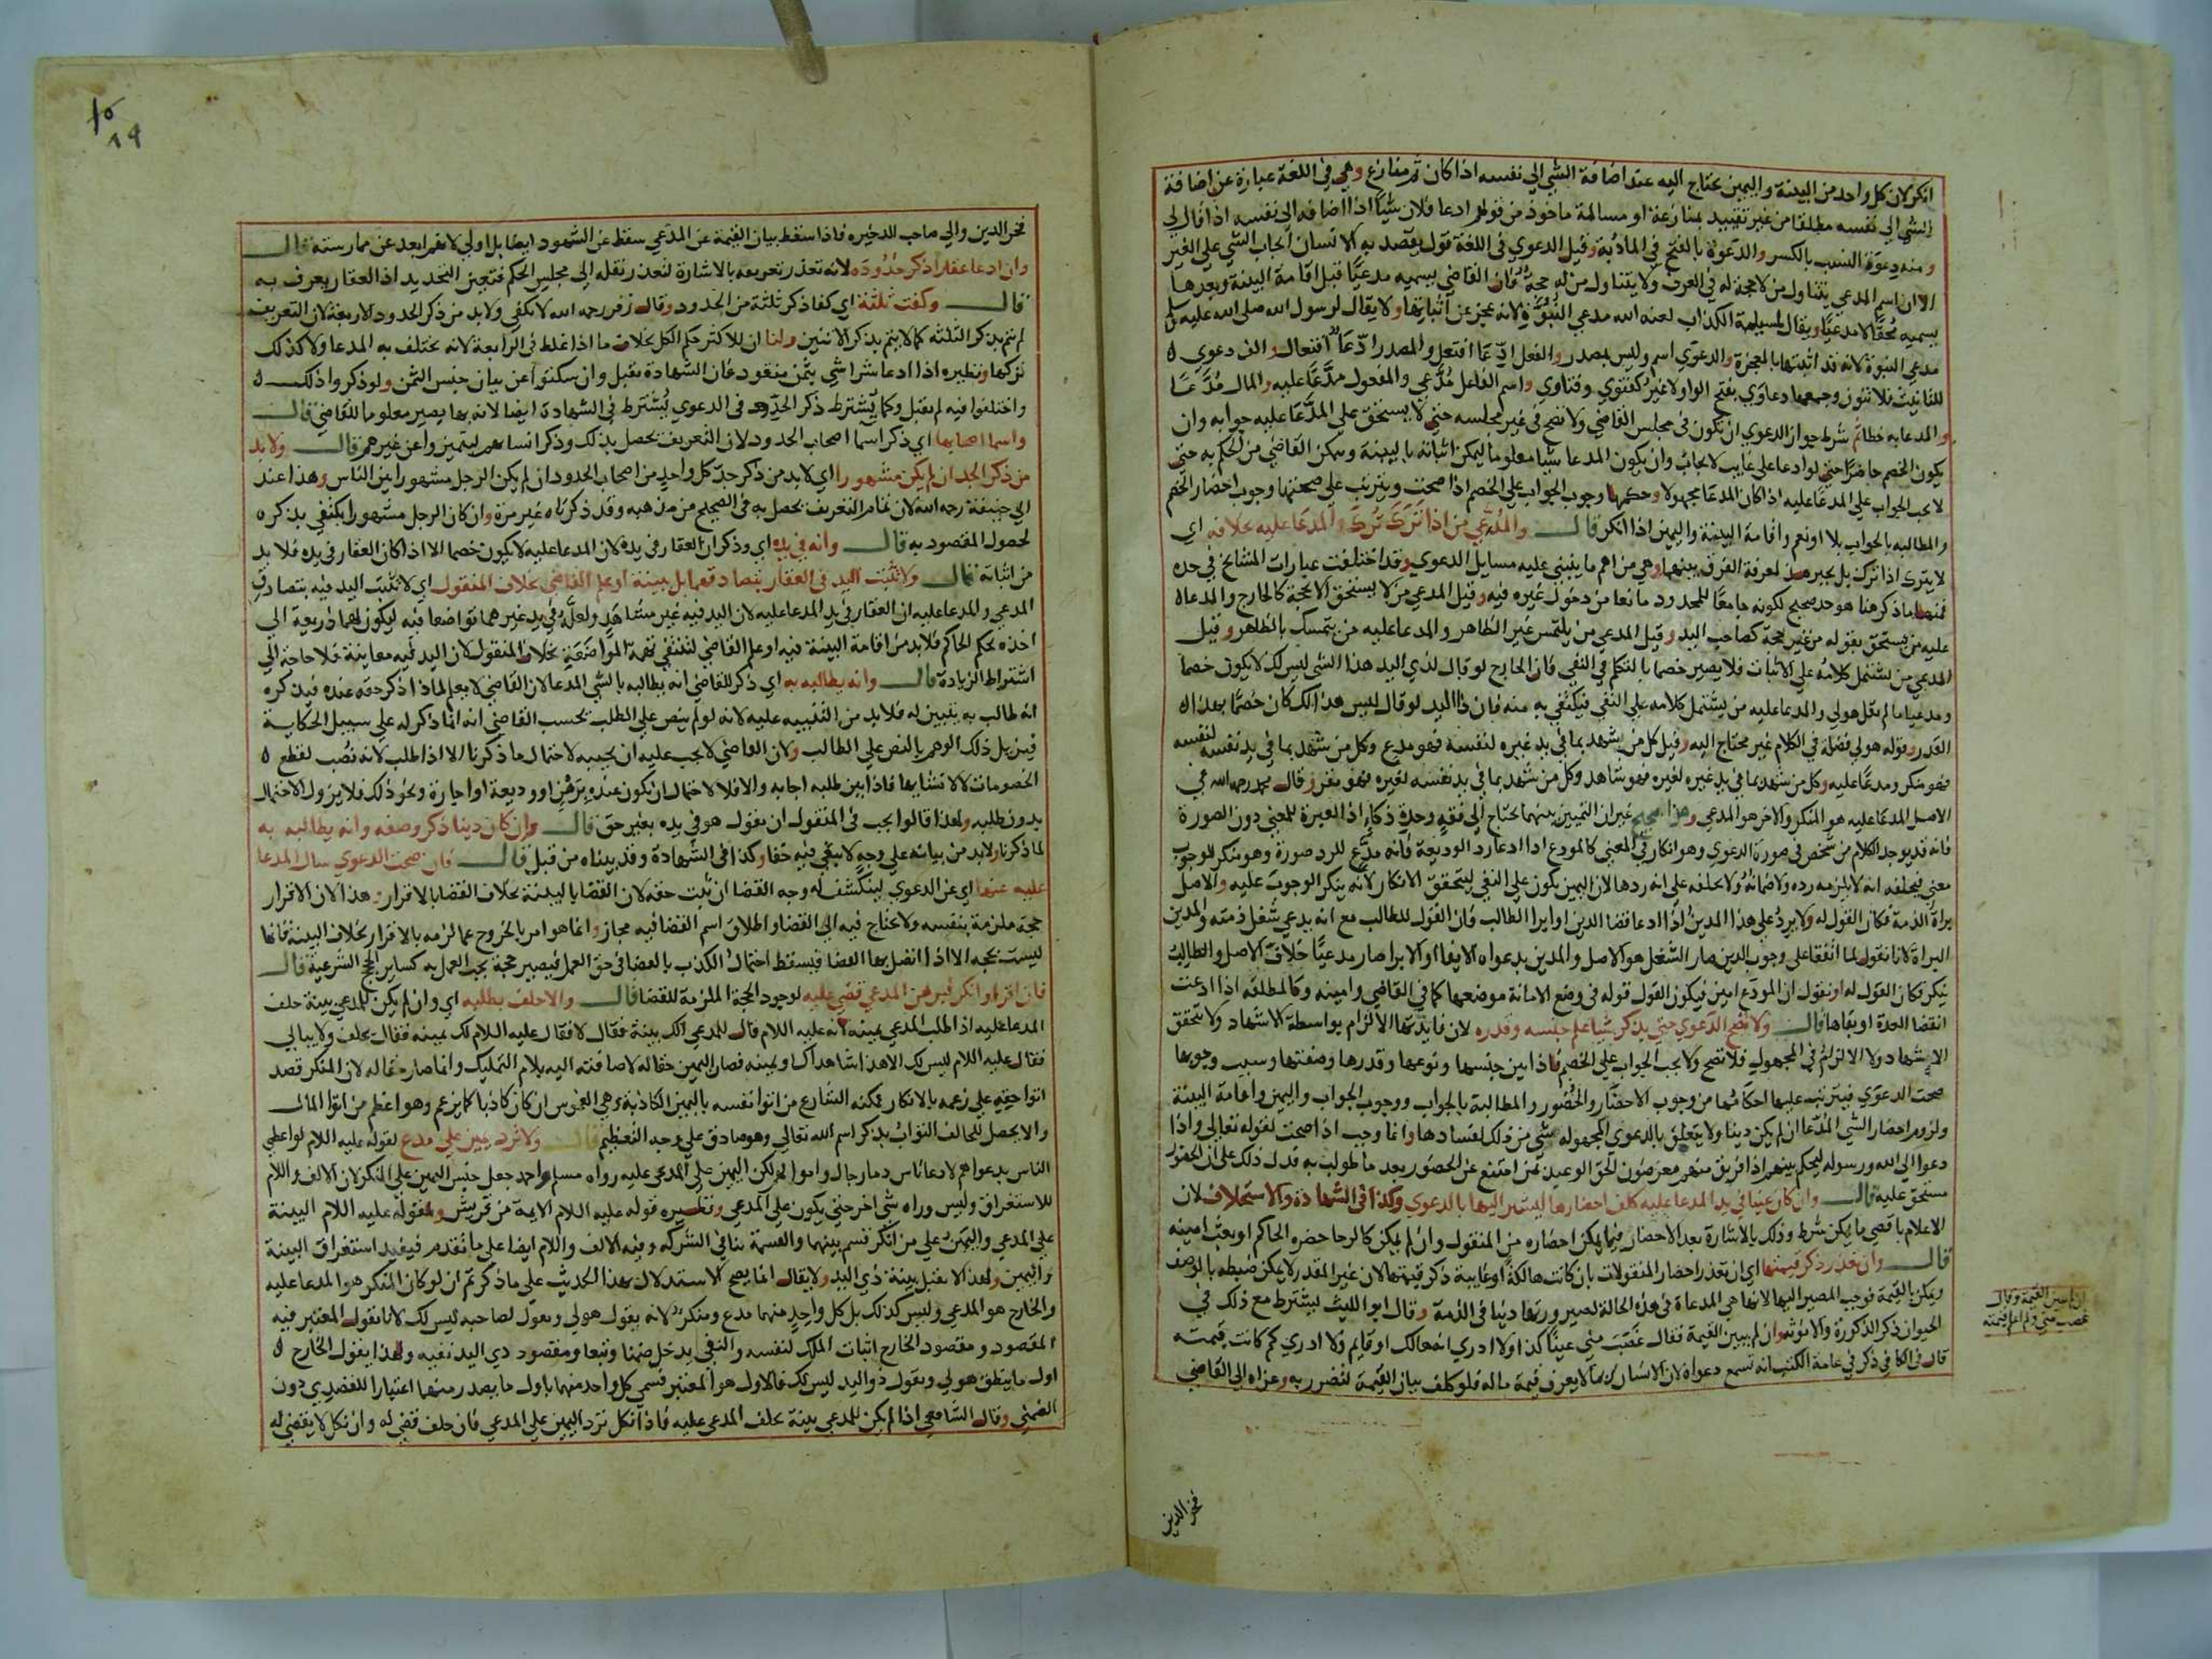 انكر لان كل واحد من البينة واليمين يحتاج اليه عند اضافة الشي الي نفسه اذا كان ثم منازع وهي في اللغة عبارة عن اضافة
الشي الي نفسه مطلقا من غير تقييد بمنازعة او مسالمة ماخوذ من قولهم ادعا فلان شيا اذا اضافه الي نفسه اذا قال لي
ومنه دعوة النسب بالكسر والدعوة بالفتح في المادبة وقيل الدعوي في اللغة قول يقصد به الانسان ايجاب الشي علي الغير
الا ان اسم المدعي يتناول من لا حجة له في العرف ولا يتناول من له حجة فان القاضي يسميه مدعيا قبل اقامة البينة وبعدها
يسميه محقا لا مدعيا ويقال لمسيلمة الكذاب لعنه الله مدعي النبوة لانه عجز عن اثباتها ولا يقال لرسول الله صلي الله عليه وسلم
مدعي النبوة لانه قد اثبتها بالمعجزة والدعوي اسم وليس بمصدر والفعل ادعا افتعل والمصدر ادعا افتعال والف دعوي
للتانيث فلا تنون وجمعها دعاوي بفتح الواو لا غير كفتوي وفتاوي واسم الفاعل مدعي والمفعول مدعا عليه والمال مدعا
والمدعا به خطا ثم شرط جواز الدعوي ان تكون في مجلس القاضي ولا تصح في غير مجلسه حتي لا يستحق علي المدعا عليه جوابه وان
يكون الخصم حاضرا حتي لو ادعا علي غايب لا يجاب وان يكون المدعا شيا معلوما ليمكن اثباته بالبينة ويمكن القاضي من الحكم به حتي
لا يجب الجواب علي المدعا عليه اذا كان المدعا مجهولا وحكمها وجوب الجواب علي الخصم اذا صحت ويترتب علي صحتها وجوب احضار الخصم
والمطالبه بالجواب بلا او نعم واقامة البينة واليمين اذا انكر قال والمدعي من اذا ترك ترك والمدعا عليه بخلافه اي
لا يترك اذا ترك بل يجبر هذا لمعرفة الفرق بينهما وهي من اهم ما يبتني عليه مسايل الدعوي وقد اختلفت عبارات المشايخ في حده
فمنها ما ذكر هنا هو حد صحيح لكونه جامعا للمحدود مانعا من دخول غيره فيه وقيل المدعي من لا يستحق الا بحجة كالخارج والمدعا
عليه من يستحق بقوله من غير حجة كصاحب اليد وقيل المدعي من يلتمس غير الظاهر والمدعا عليه من يتمسك بالظاهر وقيل
المدعي من يشتمل كلامه علي الاثبات فلا يصير خصما بالتكلم في النفي فان الخارج لو قال لذي اليد هذا الشي ليس لك لا يكون خصما
ومدعيا ما لم يقل هو لي والمدعا عليه من يشتمل كلامه علي النفي فيكتفي به منه فان ذا اليد لو قال ليس هذا لك كان خصما بهذا
القدر وقوله هو لي فضلة في الكلام غير محتاج اليه وقيل كل من يشهد بما في يد غيره لنفسه فهو مدع وكل من شهد بما في يد نفسه لنفسه
فهو منكر ومدعا عليه وكل من شهد بما في يد غيره لغيره فهو شاهد وكل من شهد بما في يد نفسه لغيره فهو مقر وقال محمد رحمه الله في
الاصل المدعا عليه هو المنكر والاخر هو المدعي وهذا صحيح غير ان التمييز بينهما يحتاج الي فقه وحدة ذكاء اذ العبرة للمعني دون الصورة
فانه قد يوجد الكلام من شخص في صورة الدعوي وهو انكار في المعني كالمودع اذا ادعا رد الوديعة فانه مدع للرد صورة وهو منكر للوجوب
معني فيحلفه انه لا يلزمه رده ولا ضمانه ولا يحلفه علي انه ردها لان اليمين يكون علي النفي ليتحقق الانكار لانه ينكر الوجوب عليه والاصل
براة الذمة فكان القول له ولا يرد علي هذا المدين اذا ادعا قضا الدين او ابرا الطالب فان القول للطالب مع انه يدعي شغل ذمته والمدين
البراة لانا نقول لما اتفقا علي وجوب الدين صار الشغل هو الاصل والمدين بدعواه الايفا او الابرا صار مدعيا خلاف الاصل والطالب
ينكر فكان القول له او نقول ان المودع امين فيكون القول قوله في وضع الامانة موضعها كما في القاضي وامينه وكالمطلقه اذا ادعت
انقضا العدة او بقاها قال ولا تصح الدعوي حتي يذكر شيا علم جنسه وقدره لان فايدتها الالزام بواسطة الاشهاد ولا يتحقق
الاشهاد ولا الالزام في المجهول فلا تصح ولا يجب الجواب علي الخصم فاذا بين جنسها ونوعها وقدرها وصفتها وسبب وجوبها
صحت الدعوي فيترتب عليها احكامها من وجوب الاحضار والحضور والمطالبة بالجواب ووجوب الجواب واليمين واقامة البينة
ولزوم احضار الشي المدعا ان لم يكن دينا ولا يتعلق بالدعوي المجهوله شي من ذلك لفسادها وانما وجب اذا صحت لقوله تعالي واذا
دعوا الي الله ورسوله ليحكم بينهم اذا فريق منهم معرضون لحق الوعيد لمن امتنع عن الحضور بعد ما طولب به فدل ذلك علي ان الحضور
مستحق عليه قال وان كان عينا في يد المدعا عليه كلف احضارها ليشير اليها بالدعوي وكذا في الشهادة والاستحلاف لان
الاعلام باقصي ما يمكن شرط وذلك بالاشارة بعد الاحضار فيما يمكن احضاره من المنقول وان لم يمكن كالرحا حضره الحاكم او بعث امينه
قال وان تعذر ذكر قيمتها اي ان تعذر احضار المنقولات بان كانت هالكة او غايبة ذكر قيمتها لان غير المقدر لا يمكن ضبطه بالوصف
ويمكن بالقيمة فوجب المصير اليها لانها هي المدعاة في هذه الحالة لصيرورتها دينا في الذمة وقال ابو الليث يشترط مع ذلك في
الحيوان ذكر الذكورة والانوثه وان لم يبين القيمة فقال غصبت مني عينا كذا ولا ادري انه هالك او قايم ولا ادري كم كانت قيمته
قال في الكافي ذكر في عامة الكتب انه تسمع دعواه لان الانسان ربما لا يعرف قيمة ماله فلو كلف بيان القيمة لتضرر به وعزاه الي القاضي
القيمة وقال
غصب مني ولم اعلم قيمته
فخر الدين
فخر الدين والي صاحب الدخيره فاذا سقط بيان القيمة عن المدعي سقط عن الشهود ايضا بل اولي لانهم ابعد عن ممارسته قال
وان ادعا عقارا ذكر حدوده لانه تعذر تعريفه بالاشارة لتعذر نقله الي مجلس الحكم فتعين التحديد اذ العقار يعرف به
قال وكفت ثلثة اي كفا ذكر ثلثة من الحدود وقال زفر رحمه الله لا يكفي ولا بد من ذكر الحدود الاربعة لان التعريف
لم يتم بذكر الثلثه كما لا يتم بذكر الاثنين ولنا ان للاكثر حكم الكل بخلاف ما اذا غلط في الرابعة لانه يختلف به المدعا ولا كذلك
تركها ونظيره اذا ادعا شرا شي بثمن منقود فان الشهادة تقبل وان سكتوا عن بيان جنس الثمن ولو ذكروا ذلك
واختلفوا فيه لم يقبل وكما يشترط ذكر الحدود في الدعوي يشترط في الشهادة ايضا لانه بها يصير معلوما للقاضي قال
واسما اصحابها اي ذكر اسما اصحاب الحدود لان التعريف يحصل بذلك وذكر انسابهم ليتميزوا عن غيرهم قال ولا بد
من ذكر الجد ان لم يكن مشهورا اي لا بد من ذكر جد كل واحد من اصحاب الحدود ان لم يكن الرجل مشهورا بين الناس وهذا عند
ابي حنيفة رحمه الله لان تمام التعريف يحصل به في الصحيح من مذهبه وقد ذكرناه غير مرة وان كان الرجل مشهورا يكتفي بذكره
لحصول المقصود به قال وانه في يده اي وذكر ان العقار في يده لان المدعا عليه لا يكون خصما الا اذا كان العقار في يده فلا بد
من اثباته قال ولا تثبت اليد في العقار بتصادقهما بل ببينة او علم القاضي بخلاف المنقول اي لا تثبت اليد فيه بتصادق
المدعي والمدعا عليه ان العقار في يد المدعا عليه لان اليد فيه غير مشاهد ولعله في يد غيرهما تواضعا فيه ليكون لهما ذريعة الي
اخذه بحكم الحاكم فلا بد من اقامة البينة فيه او علم القاضي لتنتفي تهمة المواضعة بخلاف المنقول لان اليد فيه معاينة فلا حاجة الي
اشتراط الزيادة قال وانه يطالبه به اي ذكر للقاضي انه يطالبه بالشي المدعا لان القاضي لا يعلم لماذا ذكر حقه عنده فيذكره
انه طالب به يقين له فلا بد من التنبيه عليه لانه لو لم ينص علي الطلب يحسب القاضي انه انما ذكر له علي سبيل الحكاية
فيزيل ذلك الوهم بالنص علي الطالب ولان القاضي لا يجب عليه ان يجيبه لاحتمال ما ذكرنا الا اذا طلب لانه نصب لقطع
الخصومات لا لانشايها فاذا بين طلبه اجابه والا فلا لاحتمال ان يكون عنده برهن او وديعة او اجازة ونحو ذلك فلا يزول الاحتمال
بدون طلبه ولهذا قالوا يجب في المنقول ان يقول هو في يده بغير حق قال وان كان دينا ذكر وصفه وانه يطالبه به
لما ذكرنا ولا بد من بيانه علي وجه لا يبقي فيه خفا وكذا في الشهادة وقد بيناه من قبل قال فان صحت الدعوي سال المدعا
عليه عنها اي عن الدعوي لينكشف له وجه القضا ان ثبت حقه لان القضا بالبينة بخلاف القضا بالاقرار وهذا لان الاقرار
حجة ملزمة بنفسه ولا يحتاج فيه الي القضا واطلاق اسم القضا فيه مجاز وانما هو امر بالخروج عما لزمه بالاقرار بخلاف البينة فانها
ليست بحجه الا اذا اتصل بها القضا فيسقط احتمال الكذب بالقضا في حق العمل فيصير حجة يجب العمل به كساير الحجج الشرعية قال
فان اقر او انكر فبرهن المدعي قضي عليه لوجود الحجة الملزمة للقضا قال والا حلف بطلبه اي وان لم يكن للمدعي بينة حلف
المدعا عليه اذا طلب المدعي يمينه لانه عليه اللام قال للمدعي الك بينة فقال لا فقال عليه اللام لك يمينه فقال يحلف ولا يبالي
فقال عليه اللام ليس لك الا هذا شاهداك او يمينه فصار اليمين حقا له لاضافته اليه بلام التمليك وانما صار حقا له لان المنكر قصد
اتوا حقه علي زعمه بالانكار فمكنه الشارع من اتوا نفسه باليمين الكاذبة وهي الغموس ان كان كاذبا كما يزعم وهو اعظم من اتوا المال
والا يحصل للحالف الثواب بذكر اسم الله تعالي وهو صادق علي وجه التعظيم قال ولا ترد يمين علي مدع لقوله عليه اللام لو اعطي
الناس بدعواهم لادعا ناس دما رجال واموالهم لكن اليمين علي المدعي عليه رواه مسلم واحمد جعل جنس اليمين علي المنكر لان الالف واللام
للاستغراق وليس وراه شي اخر حتي يكون علي المدعي ونظيره قوله عليه اللام الايمة من قريش ولقوله عليه اللام البينة
علي المدعي واليمين علي من انكر قسم بينهما والقسمة تنافي الشركه وفيه الالف واللام ايضا علي ما تقدم فيفيد استغراق البينة
واليمين ولهذا لا يقبل بينة ذي اليد ولا يقال انما يصح الاستدلال بهذا الحديث علي ما ذكرتم ان لو كان المنكر هو المدعا عليه
والخارج هو المدعي وليس كذلك بل كل واحد منهما مدع ومنكر لانه يقول هو لي ويقول لصاحبه ليس لك لانا نقول المعتبر فيه
المقصود ومقصود الخارج اثبات الملك لنفسه والنفي يدخل ضمنا وتبعا ومقصود ذي اليد نفيه ولهذا يقول الخارج
اول ما ينطق هو لي ويقول ذو اليد ليس لك فالاول هو المعتبر فسمي كل واحد منهما باول ما يصدر منهما اعتبارا للقصدي دون
الضمني وقال الشافعي اذا لم يكن للمدعي بينة يحلف المدعي عليه فاذا نكل ترد اليمين علي المدعي فان حلف قضي له وان نكل لا يقضي له